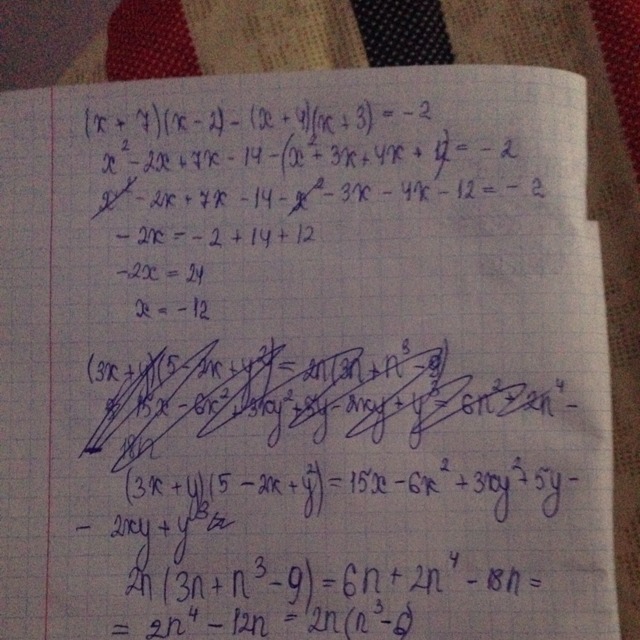 (x + 7)(x - 2) - (x + 4)(x + 3) = -2
x² - 2x + 7x - 14 - (x² + 3x + 4x + 12) = -2
x² - 2x + 7x - 14 - x² - 3x - 4x - 12 = -2
-2x = -2 + 14 + 12
-2x = 24
x = -12
(3x + y)(5 - 2x + y²) = 2n(3n + n³ - 9)
15x - 6x² + 3xy² + 5y - 2xy + y³ = 6n² + 2n⁴ -
18n
(3x + y)(5 - 2x + y²) = 15x - 6x² + 3xy² + 5y -
- 2xy + y³
2n(3n + n³ - 9) = 6n + 2n⁴ - 18n =
= 2n⁴ - 12n = 2n(n³ - 6)